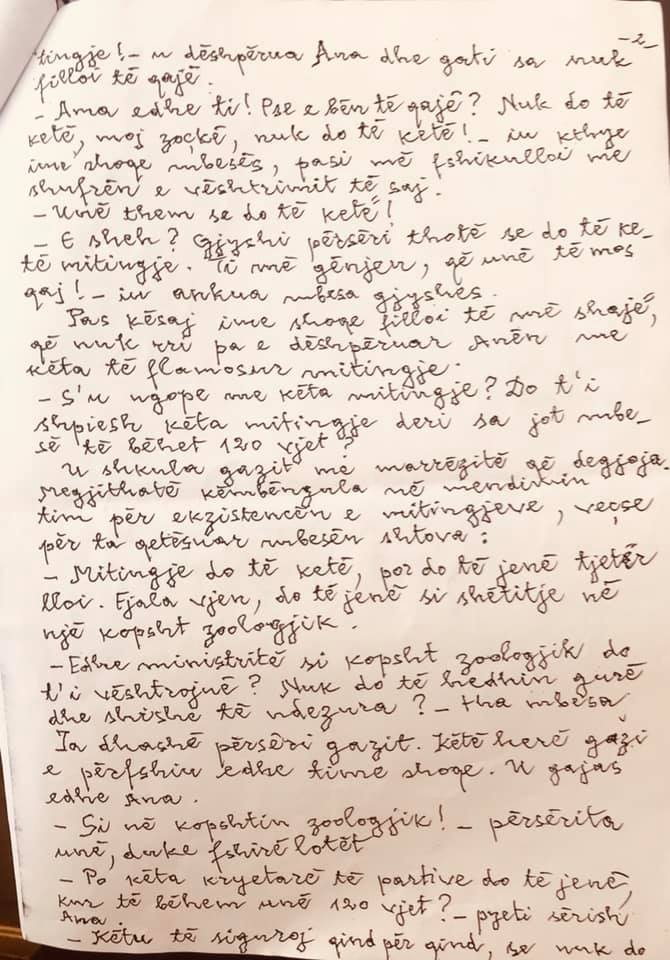 -2-
tingje! - u dëshpërua Ana dhe gati sa nuk
filloi të qajë.
- Ama edhe ti! Pse e bën të qajë? Nuk do të
ketë, moj zoçkë, nuk do të ketë! - iu kthye
ime shoqe mbesës, pasi më fshikulloi me
shufrën e vështrimit të saj.
- Unë them se do të ketë!
- E sheh? Gjyshi përsëri thotë se do të ke-
të mitingje. Ti më gënjen, që unë të mos
qaj! - iu ankua mbesa gjyshes.
Pas kësaj ime shoqe filloi të më shajë,
që nuk rri pa e dëshpëruar Anën me
këta të flamosur mitingje.
- S'u ngope me këta mitingje? Do t'i
shpiesh këta mitingje deri sa jot mbe-
së të bëhet 120 vjet?
U shkula gazit me marrëzitë që degjoja.
Megjithatë këmbëngula në mendimin
tim për ekzistencën e mitingjeve, veçse
për ta qetësuar mbesën shtova:
- Mitingje do të ketë, por do të jenë tjetër
lloi. Fjala vjen, do të jenë si shëtitje në
një kopsht zoologjik.
- Edhe ministritë si kopsht zoologjik do
t'i vështrojnë? Nuk do të hedhin gurë
dhe shishe të ndezura? - tha mbesa
Ia dhashë përsëri gazit. Këtë herë gazi
e përfshiu edhe time shoqe. U gajas
edhe Ana.
- Si në kopshtin zoologjik! - përsërita
unë, duke fshirë lotët
- Po këta kryetarë të partive do të jenë,
kur të bëhem unë 120 vjet? - pyeti sërish
Ana.
- Këtu të siguroj qind për qind, se nuk do